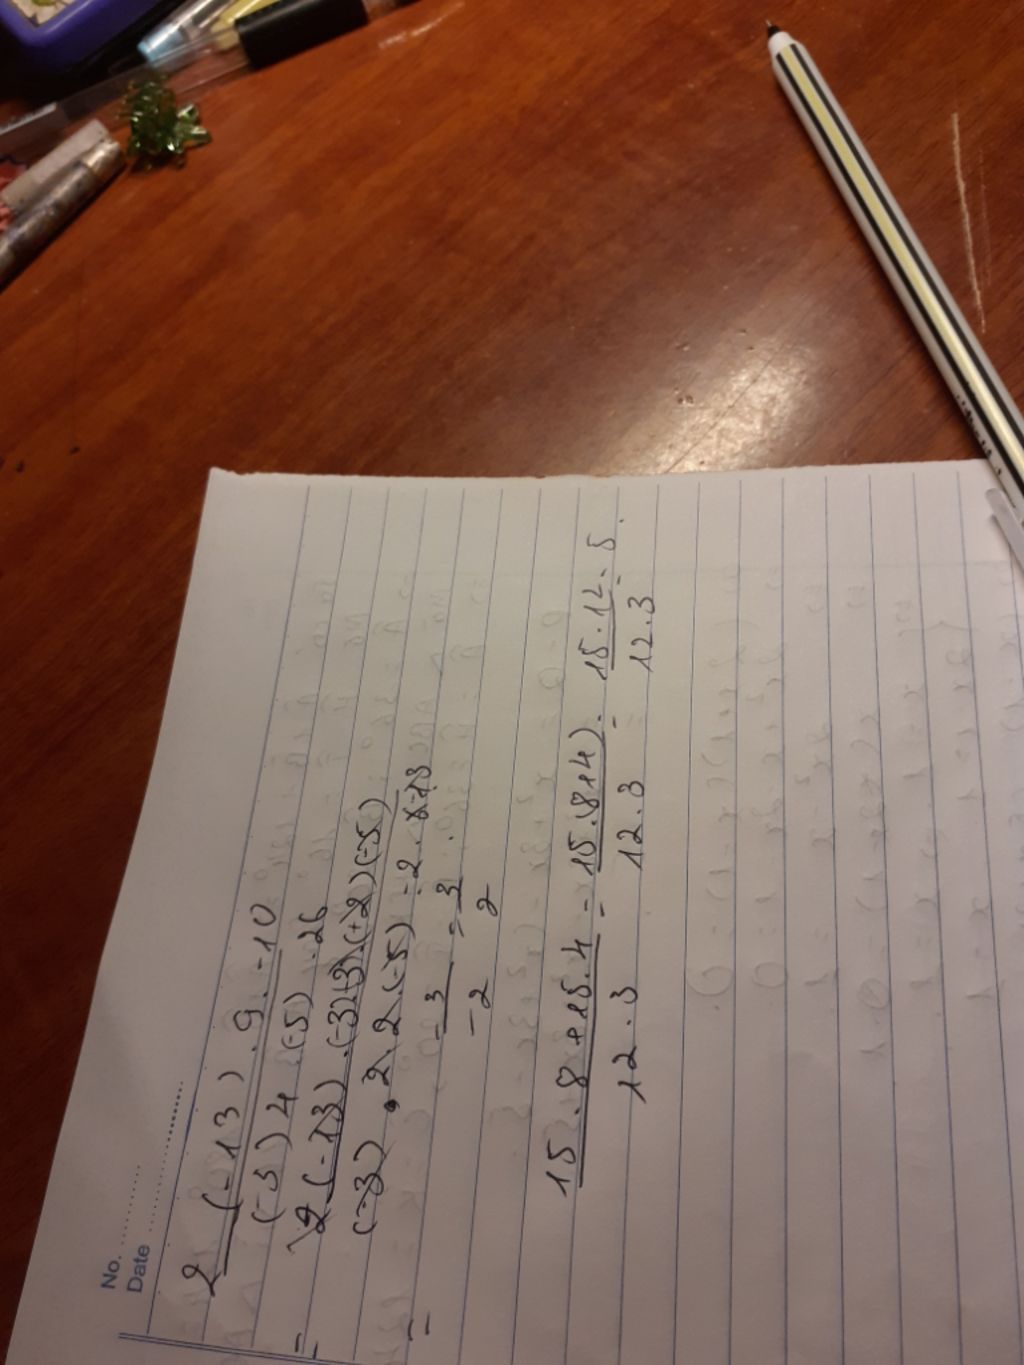 No. ............
Date ........................
2 (-13) . 9 . -10
(-3) 4 . (-5) . 26
= 2 (-13) . (-3) (-3) . (+2) (-5)
(-3) . 2 . 2 . (-5) . -2 . -13
= -3 / -2 = 3 / 2
15 . 8 + 15 . 4 = 15 . (8+4) = 15 . 12 = 5.
12 . 3 12 . 3 12 . 3